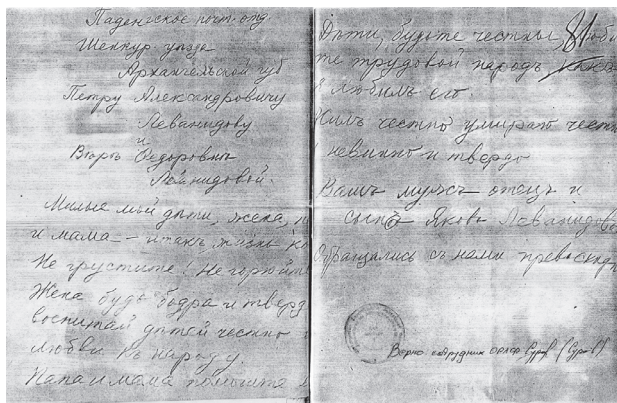 Паденгское почт. отд.
Шенкур. уезда
Архангельской губ
Петру Александровичу
Леванидову
и
Ѳедоровнѣ
Леванидовой.
Милые мои дѣти, жена,
и мама – итакъ, жизнь
Не грустите! Не горюйте
Жена будь бодра и тверд
воспитай дѣтей честно
любви къ народу.
Папа и мама помогите
Дѣти, будьте честны, люби
те трудовой народъ
я любилъ его.
Жилъ честно умираю честн
невинно и твердо
Вашъ мужъ отецъ и
сынъ Яковъ Леванидовъ
Обращались съ нами превосходн
81
Верно: сотрудник